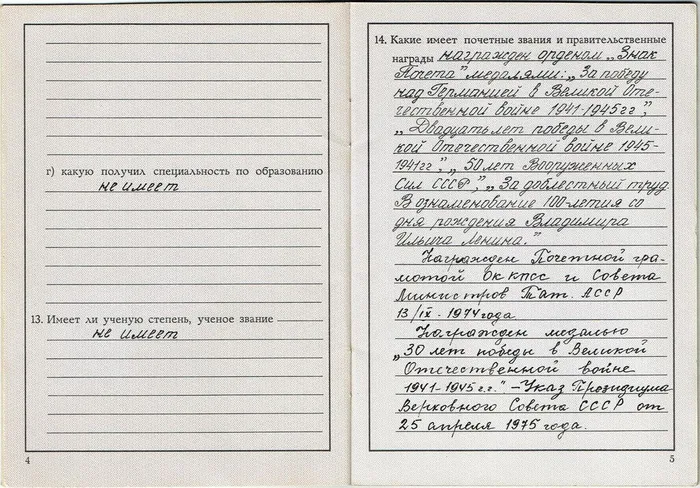 г) какую получил специальность по образованию
не имеет
13. Имеет ли ученую степень, ученое звание
не имеет
4
14. Какие имеет почетные звания и правительственные
награды награжден орденом „Знак
Почета" медалями: „За победу
над Германией в Великой Оте-
чественной войне 1941-1945гг",
„Двадцать лет победы в Вели-
кой Отечественной войне 1945-
1941гг", „50 лет Вооруженных
Сил СССР", „За доблестный труд
В ознаменование 100-летия со
дня рождения Владимира
Ильича Ленина."
Награжден Почетной гра-
мотой ОК КПСС и Совета
Министров Тат. АССР
13/IX - 1974 года
Награжден медалью
„30 лет победы в Великой
Отечественной войне
1941-1945 г.г." - Указ Президиума
Верховного Совета СССР от
25 апреля 1975 года.
5